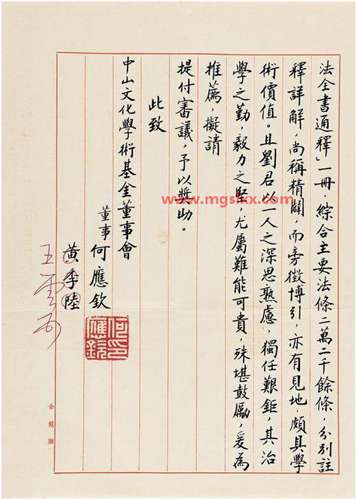 法全書通釋」一冊，綜合主要法條二萬二千餘條，分別註
釋詳解，尚稱精闢，而旁徵博引，亦有見地，頗具學
術價值。且劉君以一人之深思熟慮，獨任艱鉅，其治
學之勤，毅力之堅，尤屬難能可貴，殊堪鼓勵，爰為
推薦，擬請
提付審議，予以獎助。
此致
中山文化學術基金董事會
董事 何應欽
黃季陸
王雲五
何應欽印
www.mgsxxx.com